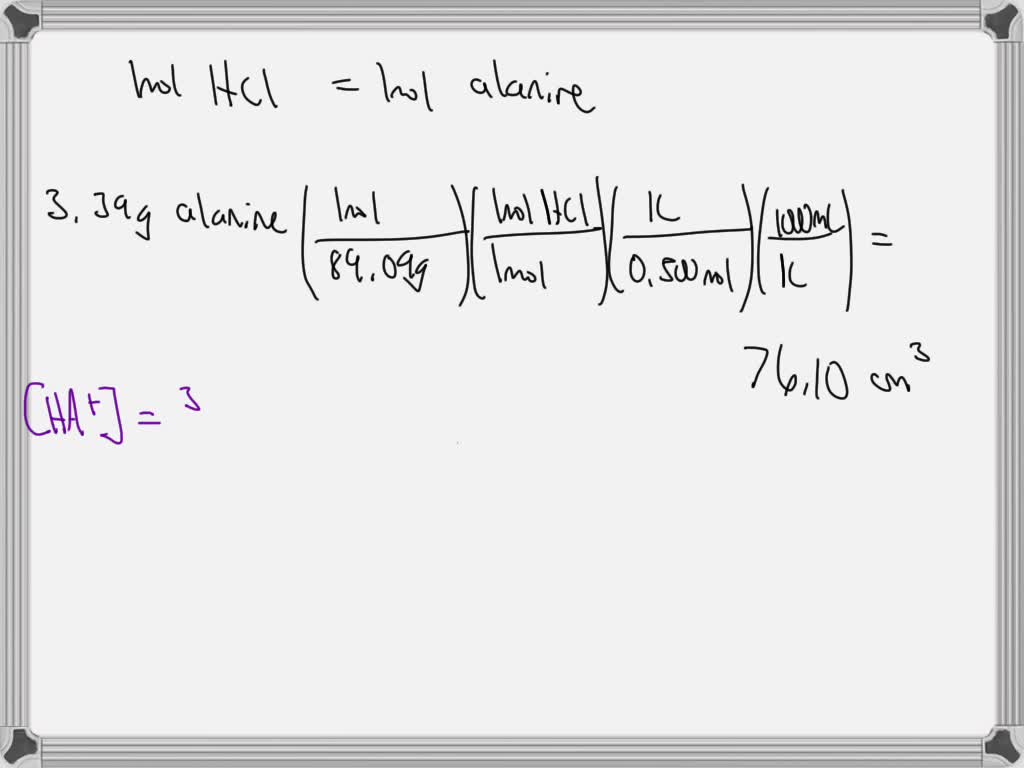 1mol HCl = 1mol alanine
3.39g alanine (1mol / 89.09g) (1mol HCl / 1mol) (1L / 0.500mol) (1000mL / 1L) =
76.10 cm³
[HA⁺] = 3